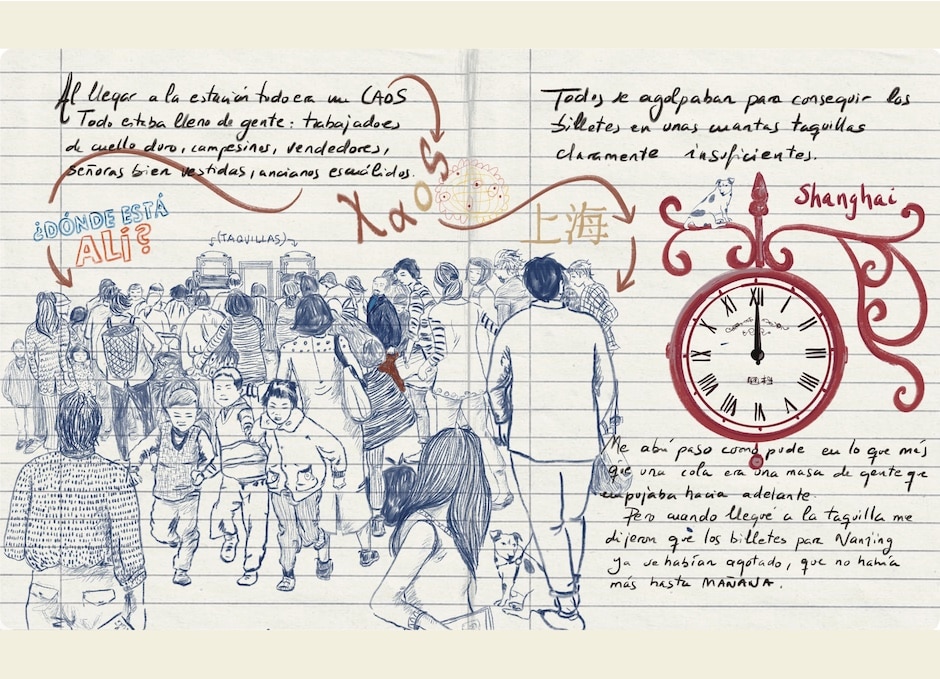 Al llegar a la estación todo era un CAOS
Todo estaba lleno de gente: trabajadores
de cuello duro, campesinos, vendedores,
señoras bien vestidas, ancianos escuálidos.
¿DÓNDE ESTÁ
ALÍ?
(TAQUILLAS)
XaoS
上海
Todos se agolpaban para conseguir los
billetes en unas cuantas taquillas
claramente insuficientes.
Shanghai
XII
I
II
III
IIII
V
VI
VII
VIII
IX
X
XI
Me abrí paso como pude en lo que más
que una cola era una masa de gente que
empujaba hacia adelante.
Pero cuando llegué a la taquilla me
dijeron que los billetes para Nanjing
ya se habían agotado, que no había
más hasta MAÑANA.